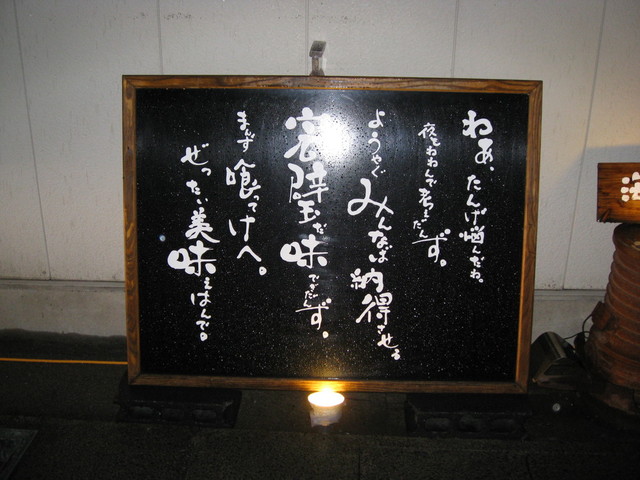 わあ、たんげ悩んだね。
夜もねねんで考えだんず。
ようやぐみんなば納得させる
完璧だ味でぎだんず。
まんず喰ってけへ。
ぜったい美味えはんで。